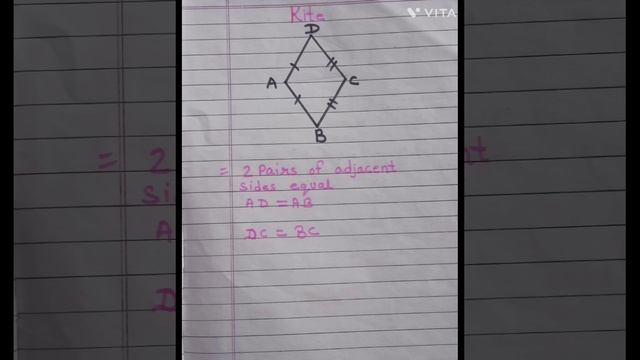 Kite
VITA
D
A
C
B
= 2 Pairs of adjacent
sides equal
AD = AB
DC = BC